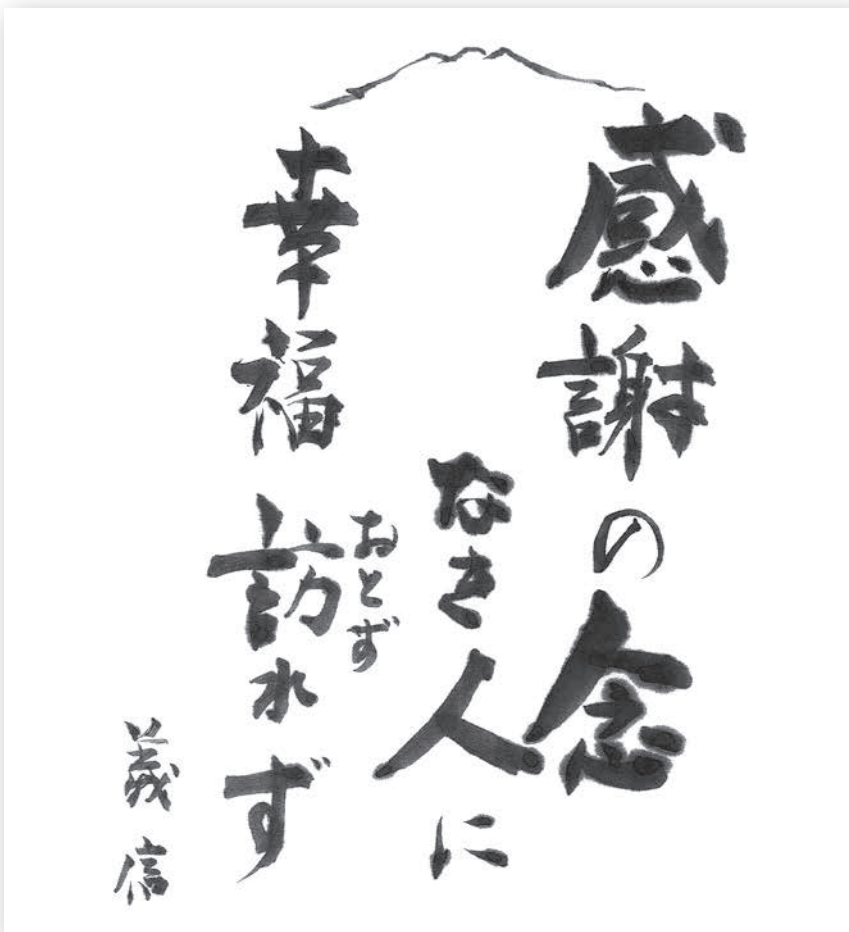 感謝の念
なき人に
幸福訪れず
おとず
義信